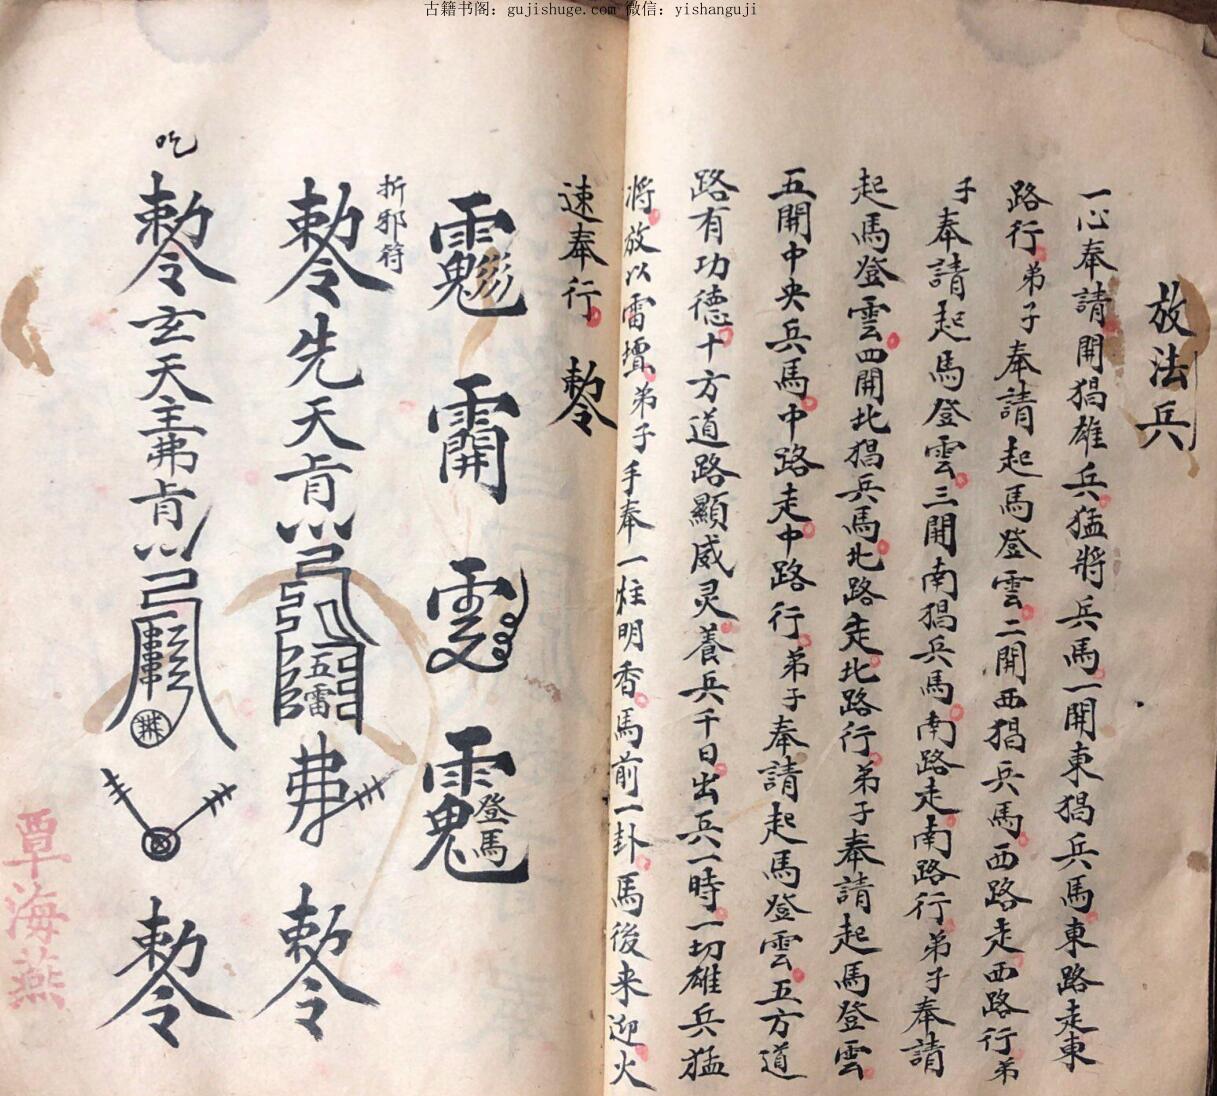 古籍书阁：gujishuge.com 微信：yishanguji
放法兵
一心奉請開猖雄兵猛將兵馬一開東猖兵馬東路走東
路行弟子奉請起馬登雲二開西猖兵馬西路走西路行弟
子奉請起馬登雲三開南猖兵馬南路走南路行弟子奉請
起馬登雲四開北猖兵馬北路走北路行弟子奉請起馬登雲
五開中央兵馬中路走中路行弟子奉請起馬登雲五方道
路有功德十方道路顯威灵養兵千日出兵一時一切雄兵猛
將放以雷壇弟子手奉一炷明香馬前一卦馬後来迎火
速奉行 勅令
登馬
折邪符
勅令先天肯弓五雷弗勅令
吃
勅令玄天主弗肯弓勅令
覃海燕